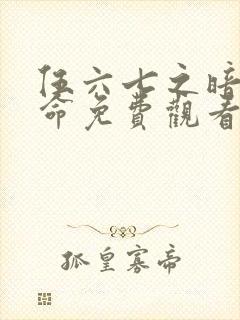 伍六七之暗
命免費觀看
孤皇寡帝